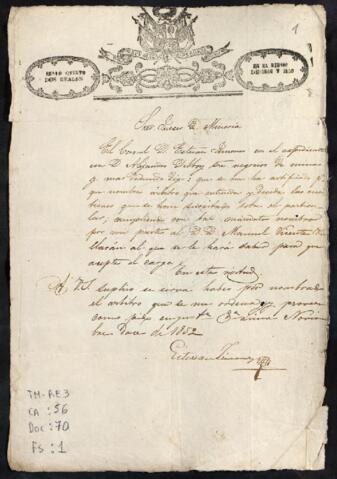 1
SELLO QUINTO
DOS REALES
EN EL BIENIO
DE 1852
Sor Juez D. Minería
El Coronel D. Estevan en el expediente
con D. Alejandro sobre negocios de minas
y mas deducido digo: que se me ha notificado p.a
que nombre árbitro que entienda y decida las cues-
tiones que se han suscitado sobre el particu-
lar; cumpliendo con tal mandato nombro
por mi parte al D. D. Manuel Vicente Vi-
llarán al que se le hará saber para que
acepte el cargo
En esta virtud
A V.S. suplico se sirva haber por nombrado
el árbitro que se me ordena y provea
como pido en just.a Lima Noviem-
bre Doce de 1852
Estevan
TM-AE3
CA : 56
Doc : 70
Fs : 1